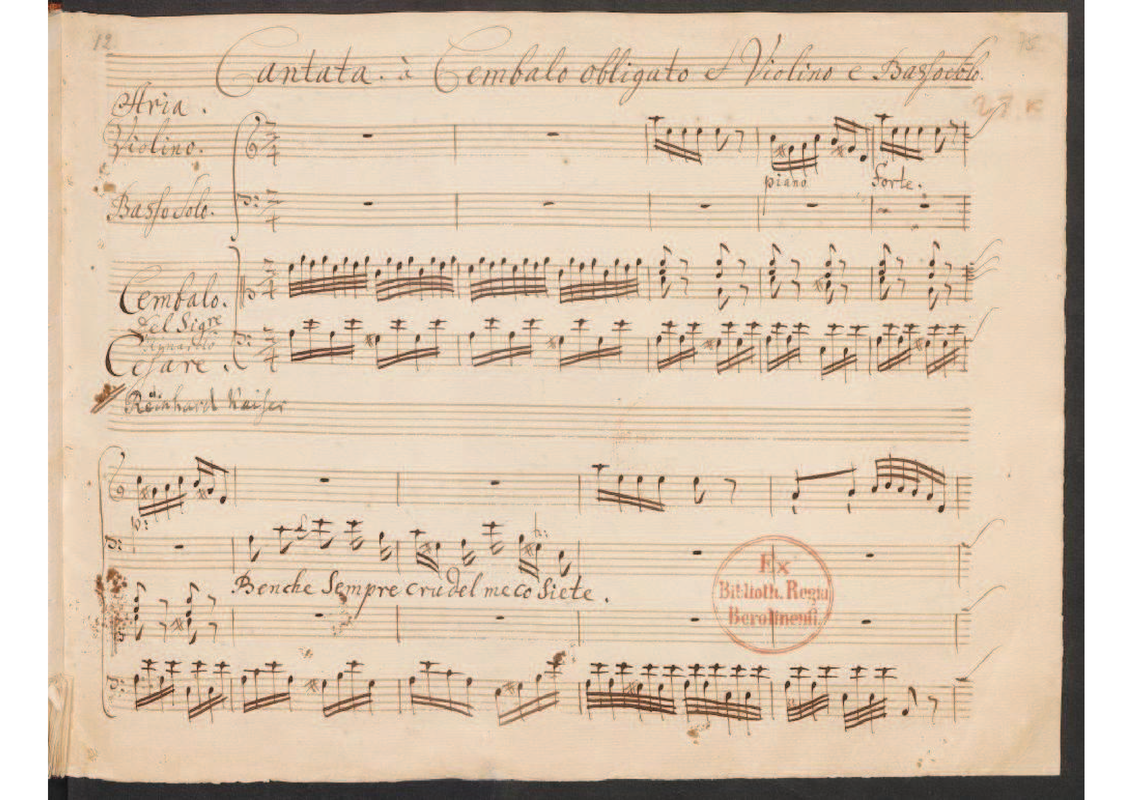 12
75
Cantata. à Cembalo obligato et Violino e Basso solo.
Aria.
Violino.
piano forte.
Basso Solo.
Cembalo.
del Sigre
Cesare.
Reinhard Kaiser
p:
Benche Sempre crudel meco Siete.
Ex
Biblioth. Regia
Berolinensi.